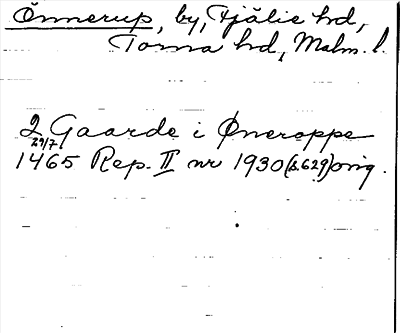 Önnerup, by, Fjälie hd,
Torna hd, Malm. l.
2 Gaarde i Øneroppe
29/7
1465 Rep. II nr 1930 (s. 629) orig.